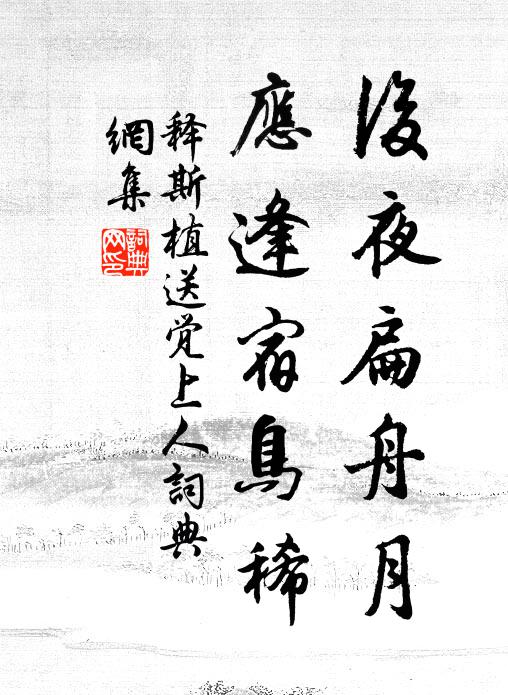 後夜扁舟月
應逢宿鳥稀
释斯植送觉上人詞典
網集
詞典
网印